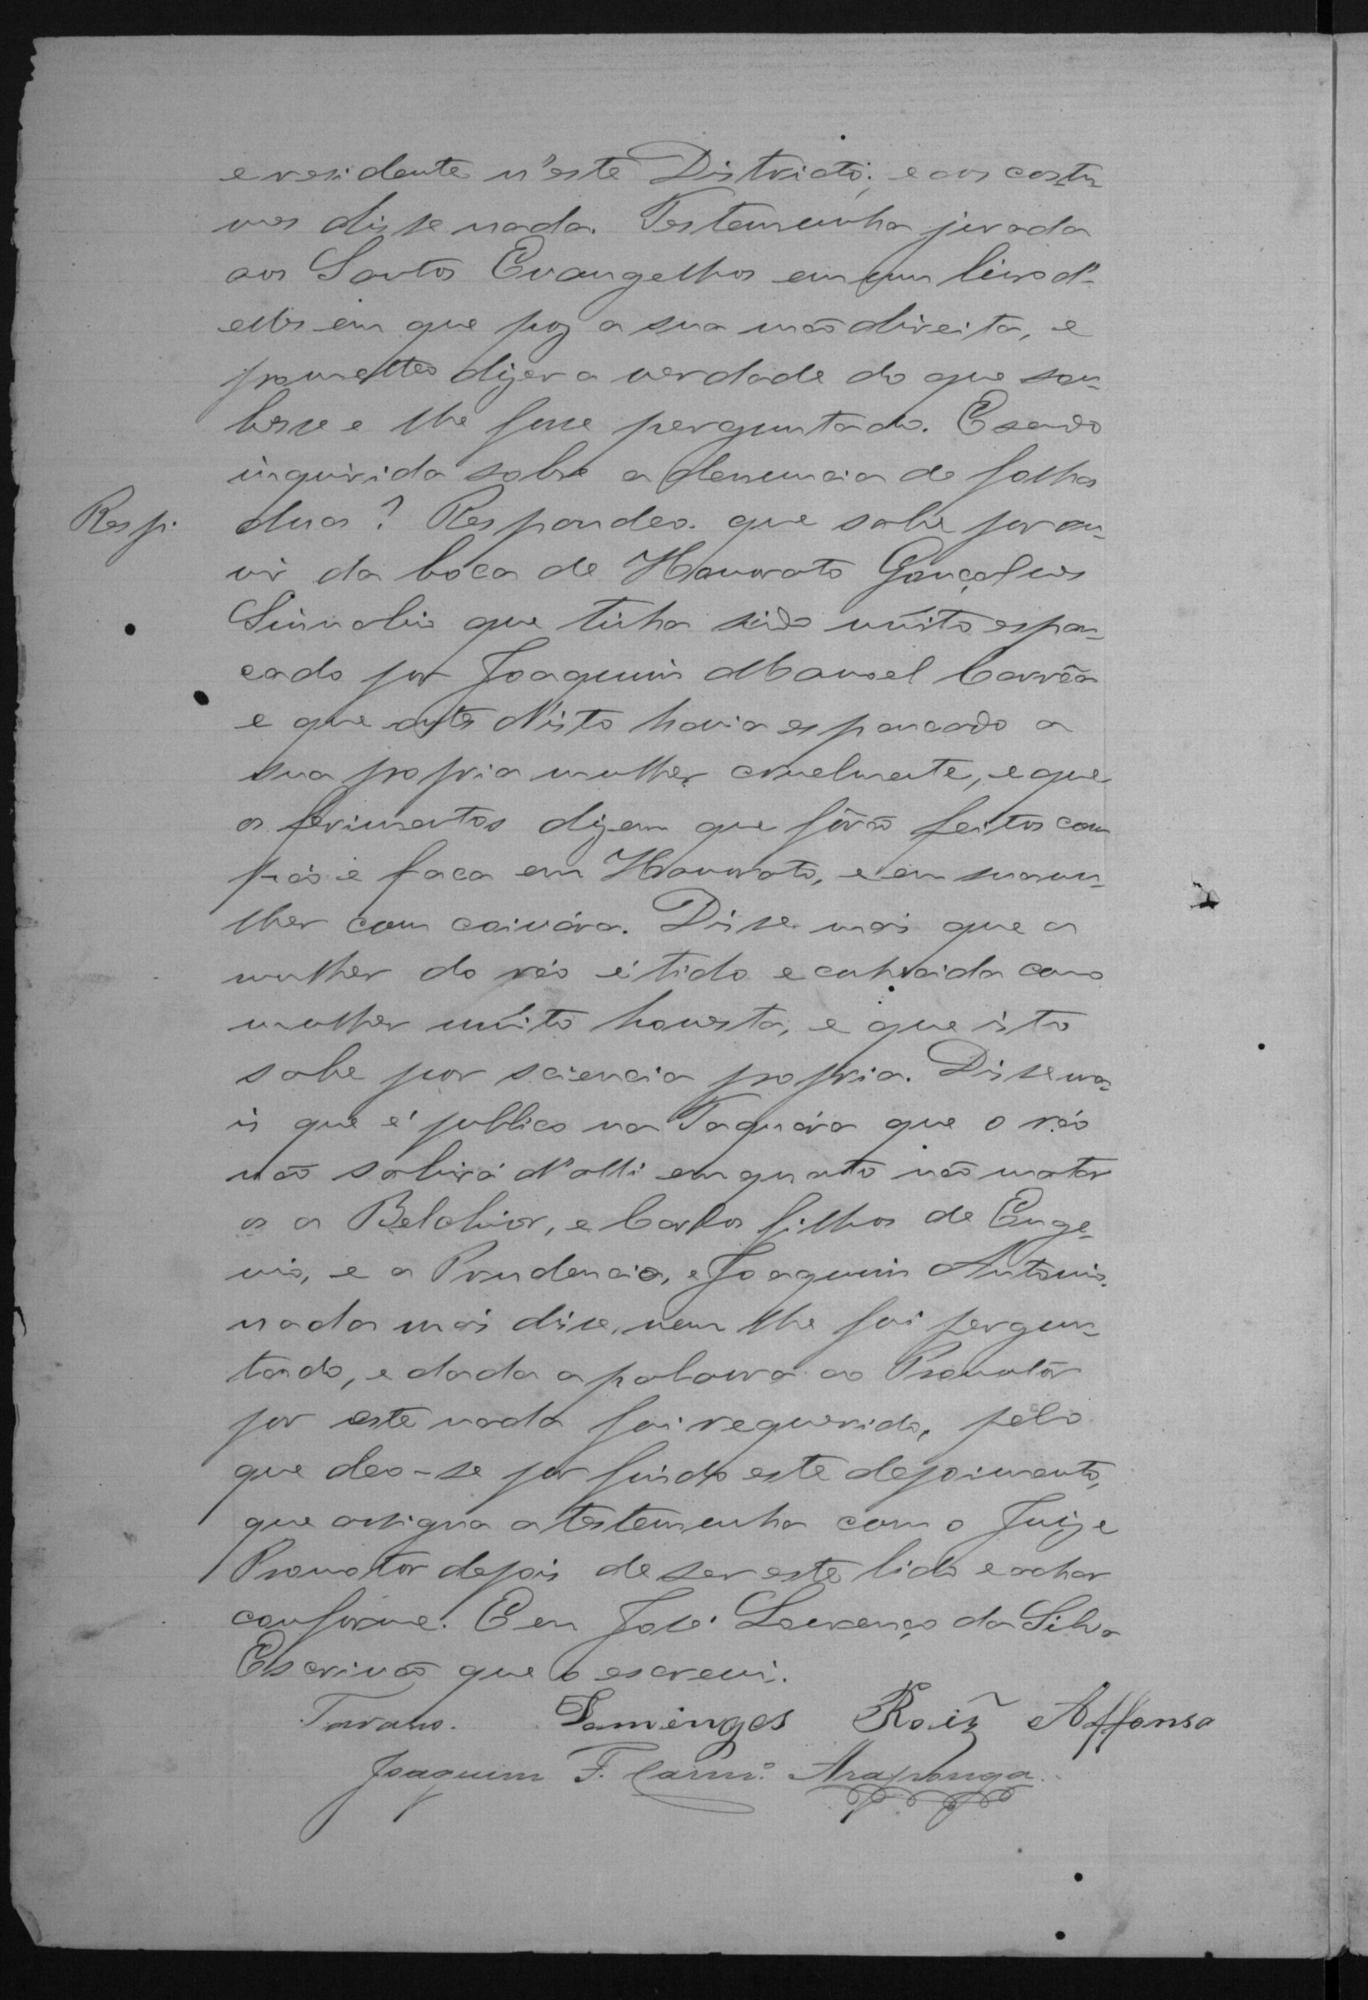 e residente n'este Districto; e aos costu-
mes disse nada. Testemunha jurada
aos Santos Evangelhos em um livro d'-
elles em que poz a sua mão direita, e
prometteo dizer a verdade do que sou-
besse e lhe fosse perguntado. E sendo
inquirida sobre a denuncia de folhas
Resp. duas? Respondeo. que sabe por ou-
vir da boca de Honorato Gonçalves
que tinha sido muito espan-
cado por Joaquim Manoel Corrêa
e que antes d'isto havia espancado a
sua propria mulher cruelmente, e que
os ferimentos dizem que fôrão feitos com
páo e faca em Honorato, e em sua mu-
lher com coivára. Disse mais que a
mulher do réo é tida e conhecida como
mulher muito honesta, e que isto
sabe por sciencia propria. Disse ma-
is que é publico na Taquára que o réo
não sahirá d'alli em quanto não matar
os a Belchior, e Carlos filhos de Euge-
nio, e a Prudencio, e Joaquim Antonio.
nada mais disse, nem lhe foi pergun-
tado, e dada a palavra ao Promotôr
por este nada foi requerido, pelo
que deo-se por findo este depoimento,
que assigna a testemunha com o Juiz e
Promotor depois de ser este lido e achar
conforme. E eu José Lourenço da Silva
Escrivão que o escrevi.
Domingos Roiz Affonso
Joaquim F. Carnr.º Araponga.